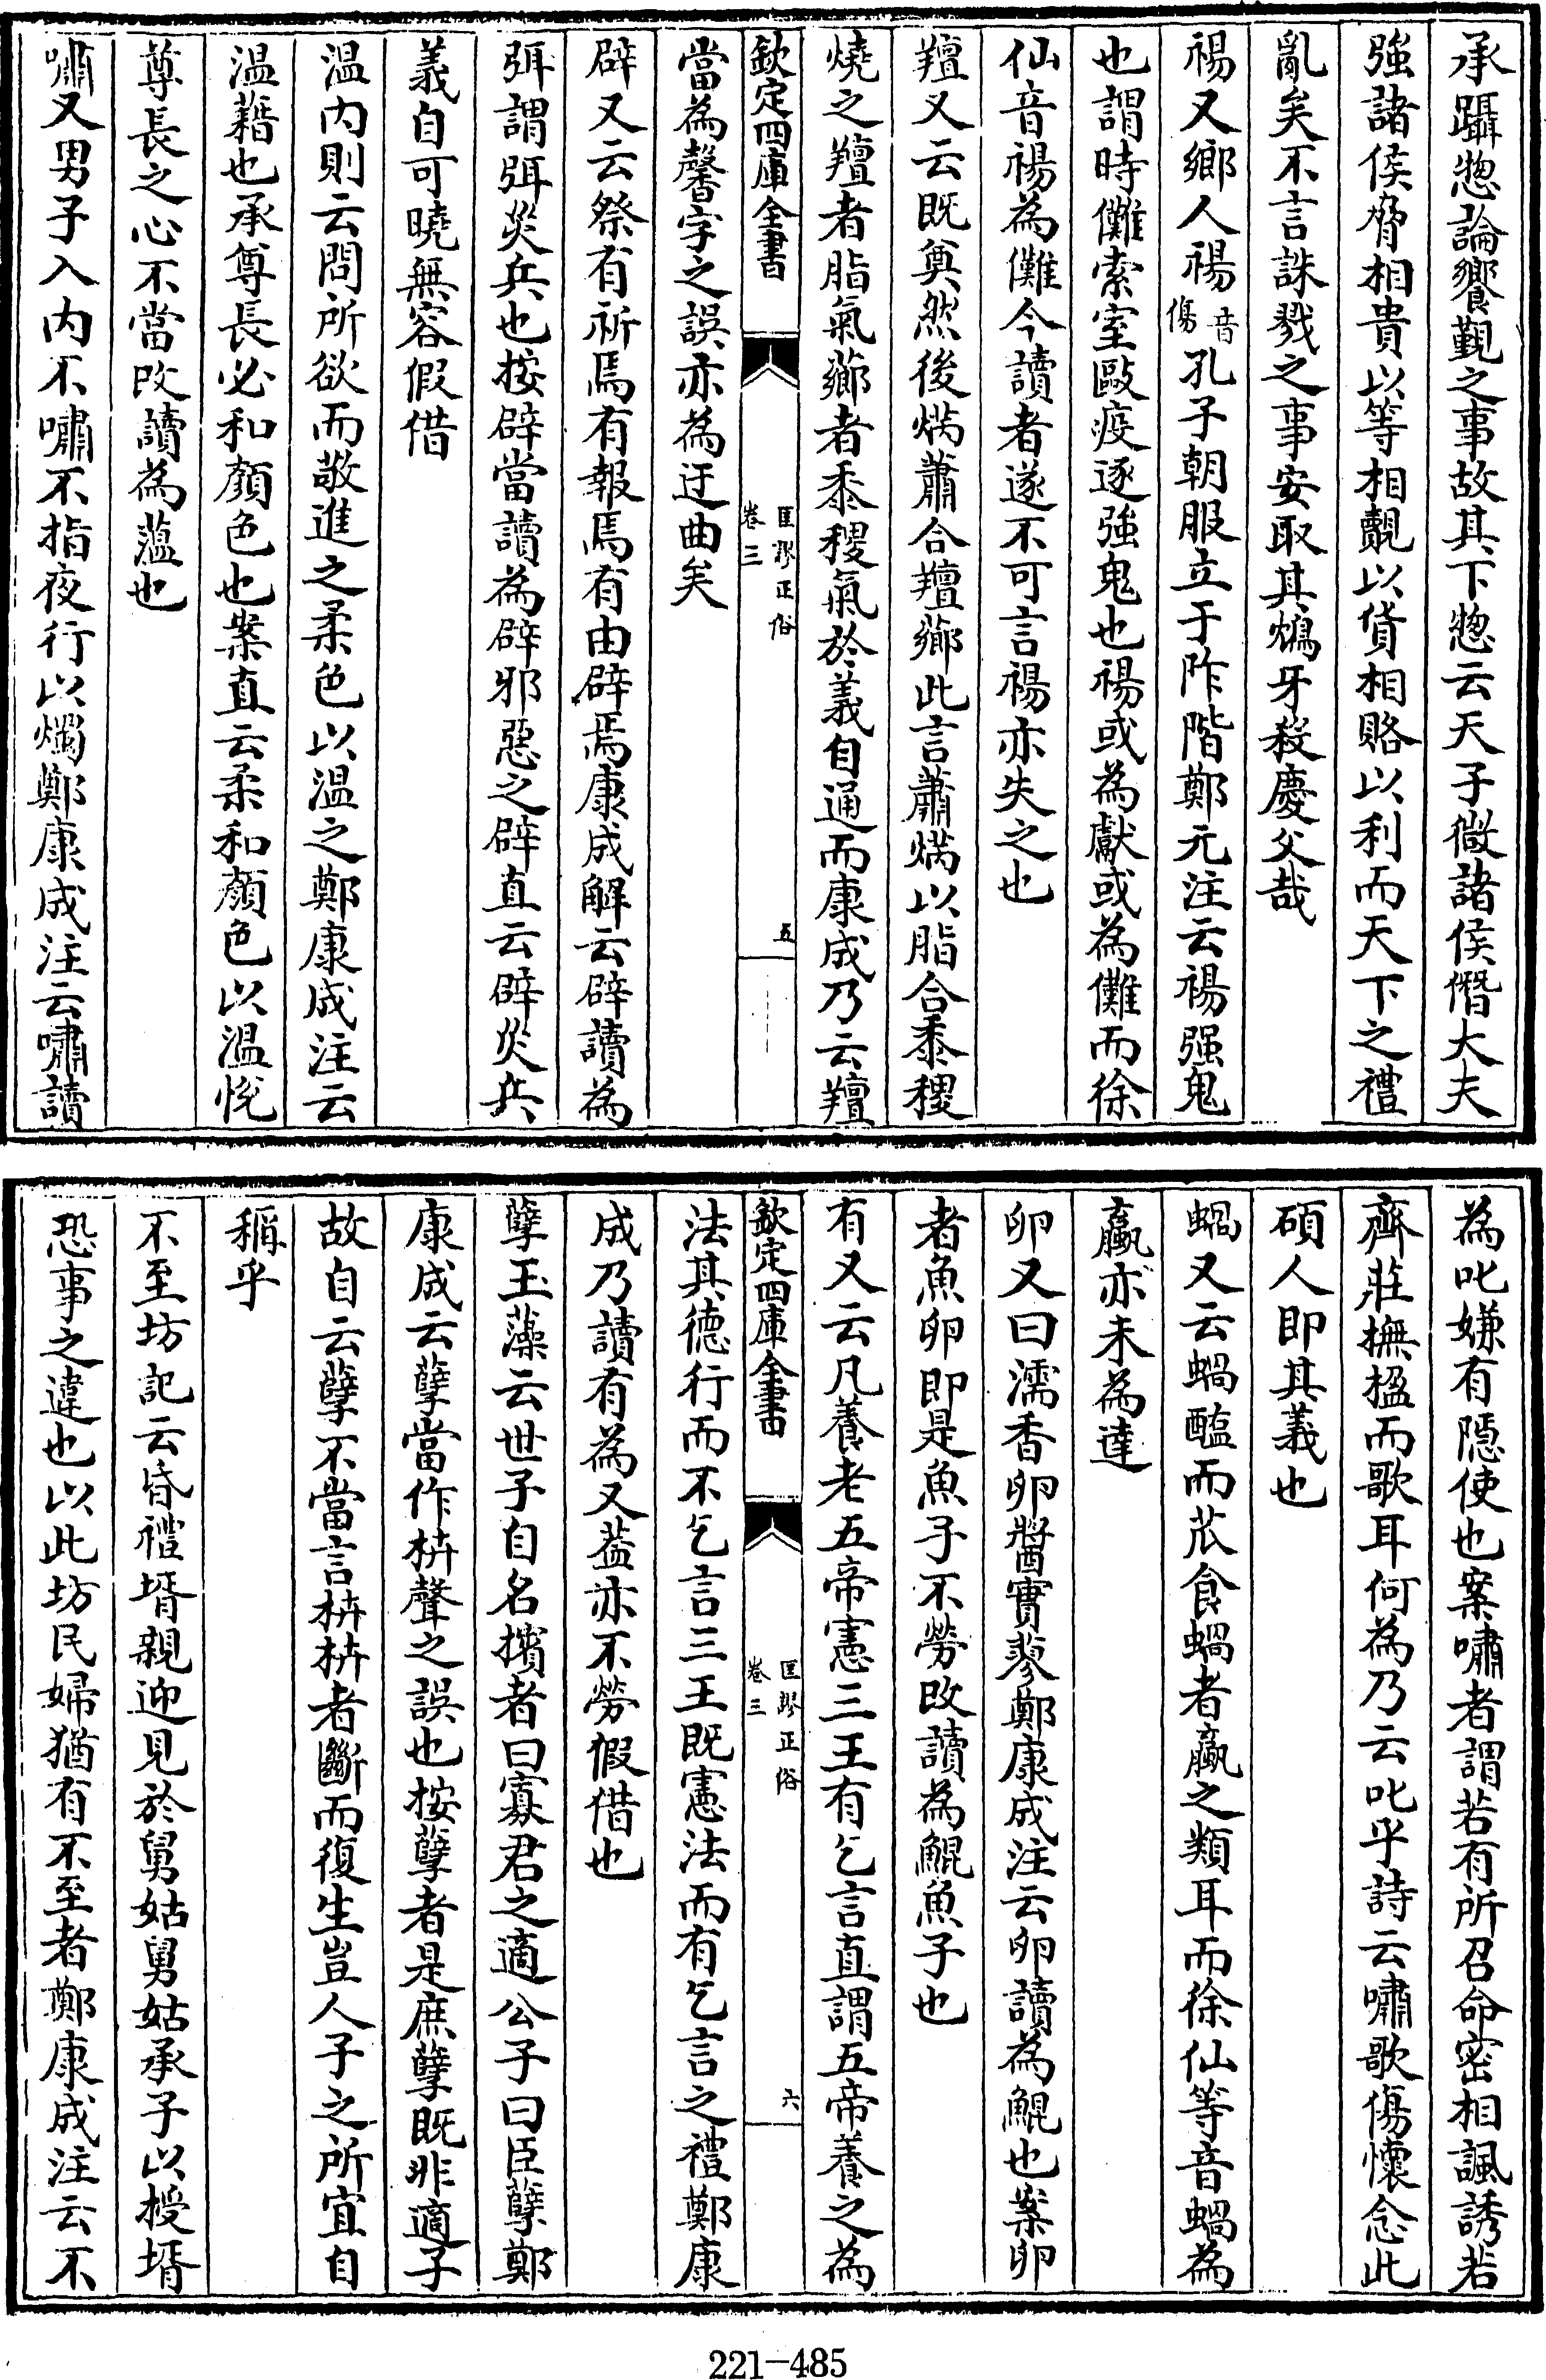 承躡惣論饗覲之事故其下惣云天子微諸侯僭大夫
強諸侯脅相貴以等相覿以貨相賂以利而天下之禮
亂矣不言誅戮之事安取其鴆牙殺慶父哉
禓又鄉人禓音傷孔子朝服立于阼階鄭元注云禓强鬼
也謂時儺索室毆疫逐強鬼也禓或為獻或為儺而徐
仙音禓為儺今讀者遂不可言禓亦失之也
羶又云既奠然後焫蕭合羶薌此言蕭焫以脂合黍稷
燒之羶者脂氣薌者黍稷氣於義自通而康成乃云羶
欽定四庫全書
匡謬正俗
卷三
五
當為馨字之誤亦為迂曲矣
辟又云祭有祈焉有報焉有由辟焉康成解云辟讀為
弭謂弭災兵也按辟當讀為辟邪惡之辟直云辟災兵
義自可曉無容假借
温内則云問所欲而敬進之柔色以温之鄭康成注云
温藉也承尊長必和顏色也案直云柔和顏色以温悅
尊長之心不當改讀為薀也
嘯又男子入内不嘯不指夜行以燭鄭康成注云嘯讀
為叱嫌有隱使也案嘯者謂若有所召命密相諷誘若
齊莊撫楹而歌耳何為乃云叱乎詩云嘯歌傷懷念此
碩人即其義也
蝸又云蝸醢而苽食蝸者蠃之類耳而徐仙等音蝸為
蠃亦未為達
卵又曰濡香卵醬實蓼鄭康成注云卵讀為鯤也案卵
者魚卵即是魚子不勞改讀為鯤魚子也
有又云凡養老五帝憲三王有乞言直謂五帝養之為
欽定四庫全書
匡謬正俗
卷三
六
法其德行而不乞言三王既憲法而有乞言之禮鄭康
成乃讀有為又葢亦不勞假借也
孽玉藻云世子自名擯者曰寡君之適公子曰臣孽鄭
康成云孽當作枿聲之誤也按孽者是庶孽既非適子
故自云孽不當言枿枿者斷而復生豈人子之所宜自
稱乎
不至坊記云昏禮壻親迎見於舅姑舅姑承子以授壻
恐事之違也以此坊民婦猶有不至者鄭康成注云不
221-485